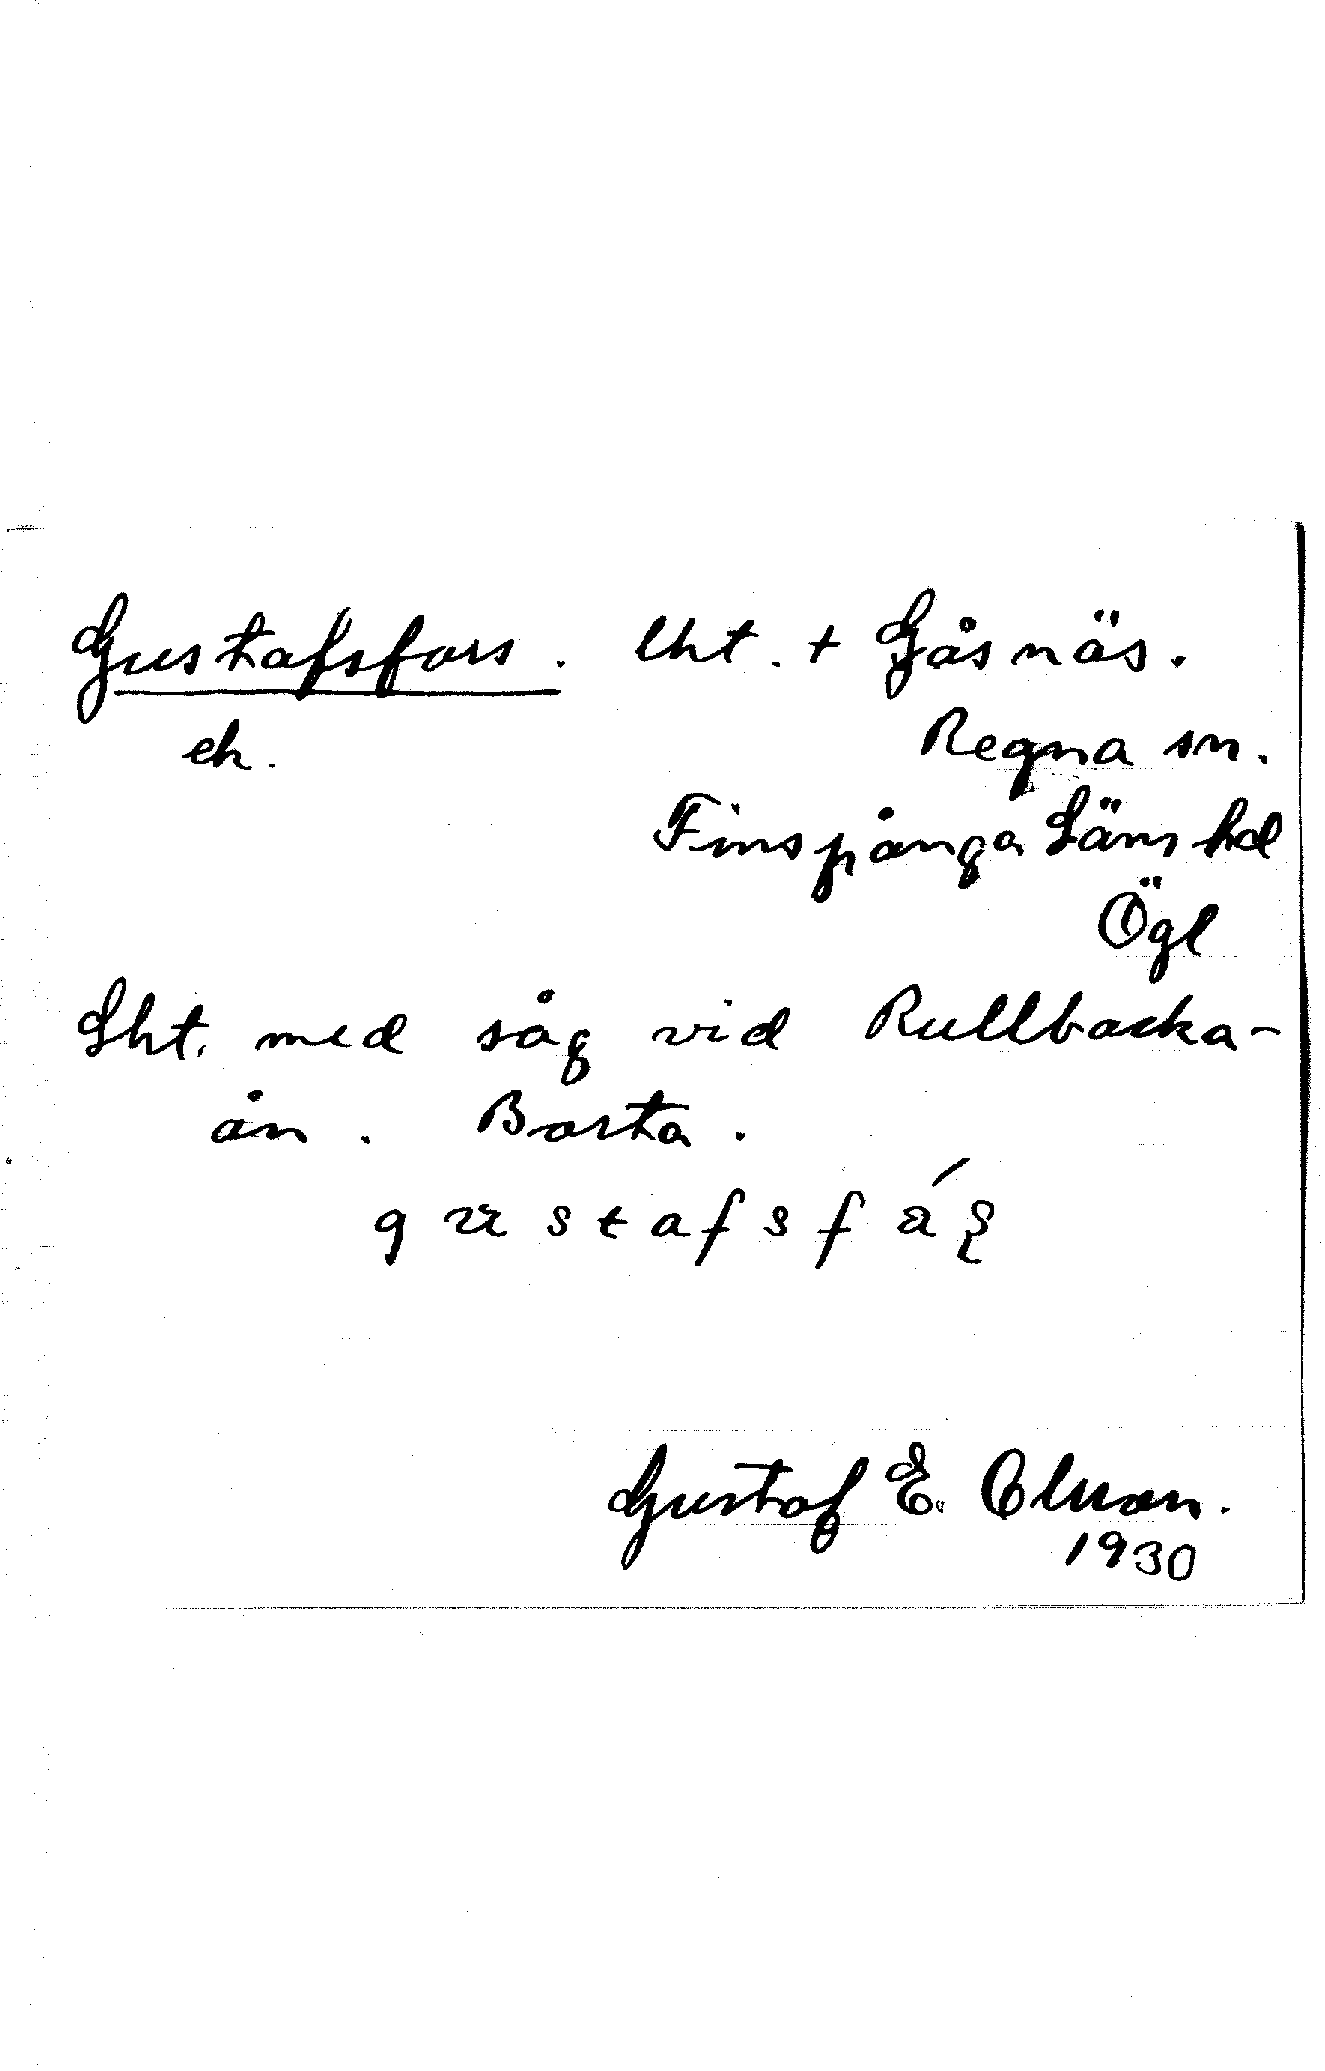 Gustafsfors. lht. + Gåsnäs.
ek. Regna sn.
Finspånga Läns hd
Ögl
Lht. med såg vid Rullbacka-
ån. Borta.
Gustaf E. Elman.
1930